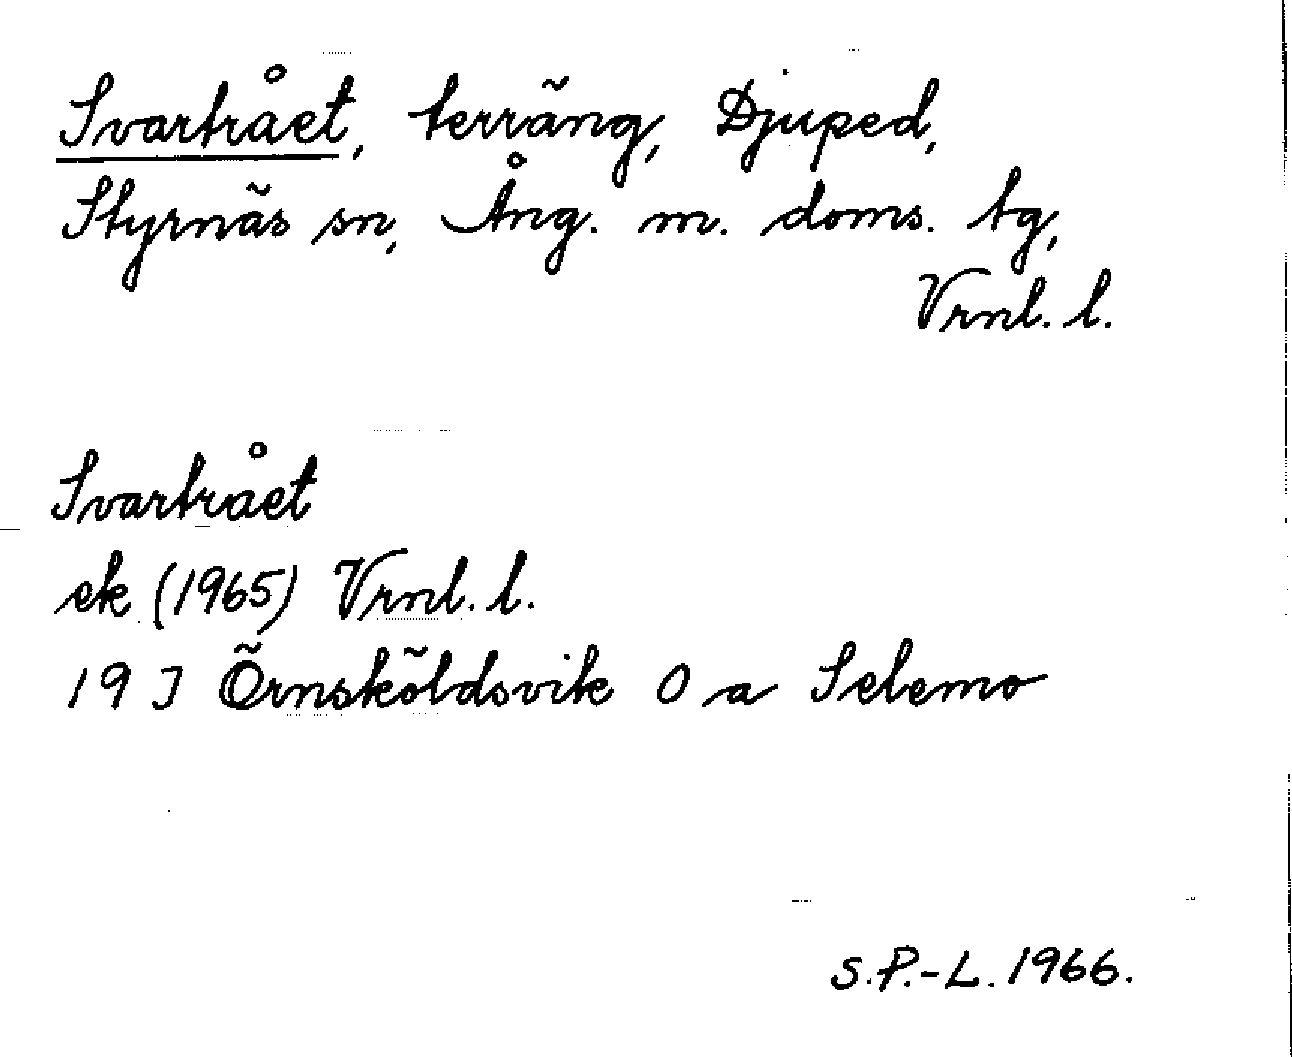 Svartrået, terräng, Djuped,
Styrnäs sn, Ång. m. doms. tg,
Vrnl. l.
Svartrået
ek (1965) Vrnl. l.
19 J Örnsköldsvik O a Selemo
S.P.-L. 1966.